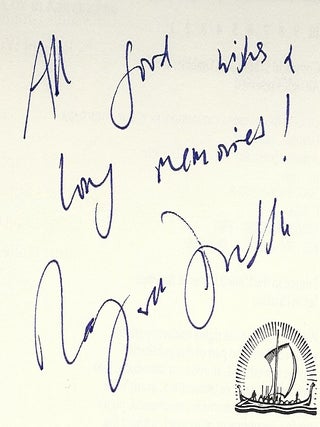 All good wishes &
long memories!